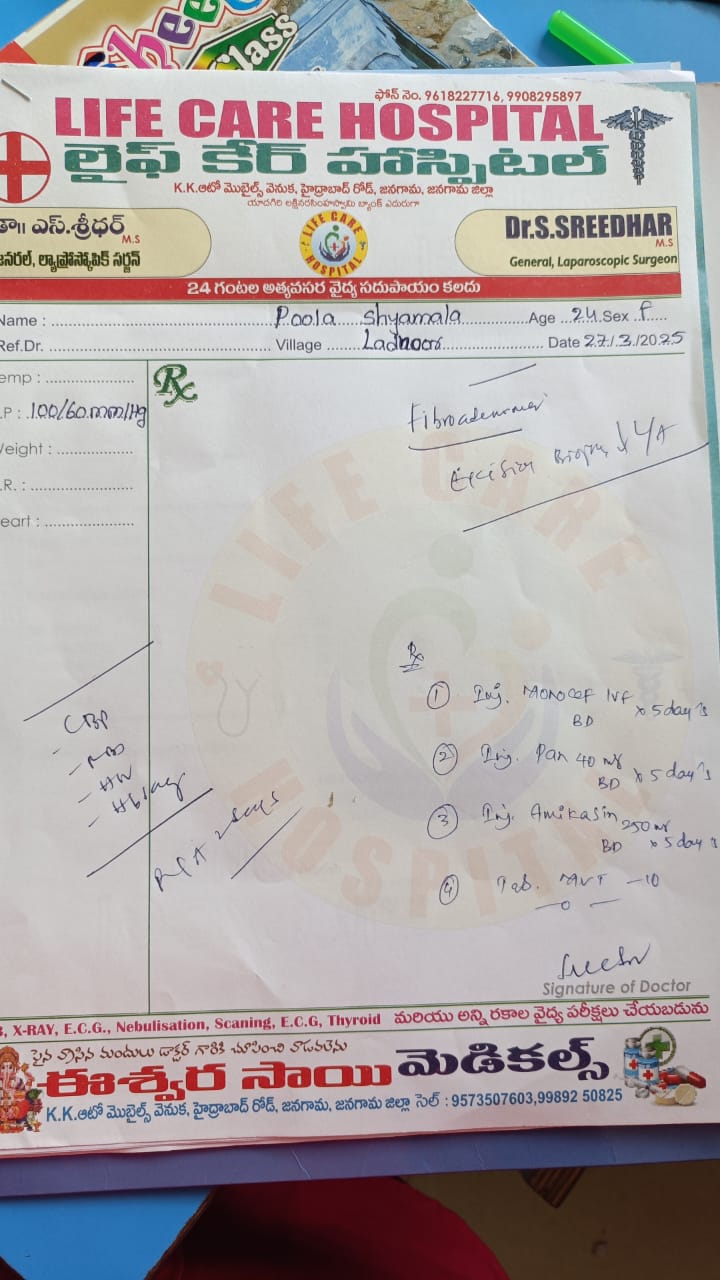 Class
ఫోన్ నెం. 9618227716, 9908295897
LIFE CARE HOSPITAL
లైఫ్ కేర్ హాస్పిటల్
K.K.ఆటో మొబైల్స్ వెనుక, హైద్రాబాద్ రోడ్, జనగామ, జనగామ జిల్లా
యాదగిరి లక్ష్మీనరసింహస్వామి బ్యాంక్ ఎదురుగా
డా॥ ఎస్.శ్రీధర్
M.S
జనరల్, ల్యాప్రోస్కోపిక్ సర్జన్
LIFE CARE
HOSPITAL
Dr.S.SREEDHAR
M.S
General, Laparoscopic Surgeon
24 గంటల అత్యవసర వైద్య సదుపాయం కలదు
Name : Poola Shyamala Age 24 Sex F
Ref.Dr. Village Ladnoor Date 27/3/2025
emp :
.P : 100/60 mm/Hg
Weight :
.R. :
eart :
Rx
Excision Biopsy
LIFE CARE
HOSPITAL
Rx
① Inj. Monocef IVF x 5 day's
BD
② Inj. Pan 40 mg x 5 day's
BD
③ Inj. Amikasin 250 mg
BD x 5 day's
④ Tab. MVT - 10
- CBP
Signature of Doctor
X-RAY, E.C.G., Nebulisation, Scaning, E.C.G, Thyroid మరియు అన్ని రకాల వైద్య పరీక్షలు చేయబడును
పైన వ్రాసిన మందులు డాక్టర్ గారికి చూపించి వాడవలెను
ఈశ్వర సాయి మెడికల్స్
K.K.ఆటో మొబైల్స్ వెనుక, హైద్రాబాద్ రోడ్, జనగామ, జనగామ జిల్లా సెల్ : 9573507603,99892 50825